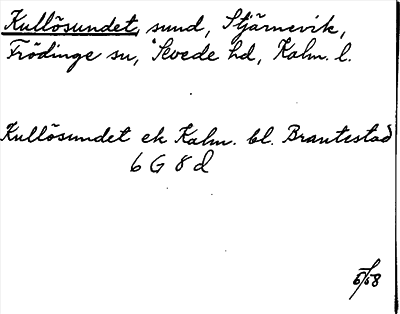 Kullösundet, sund, Stjärnevik,
Frödinge sn, Sevede hd, Kalm. l.
Kullösundet ek Kalm. bl. Brantestad
6 G 8 d